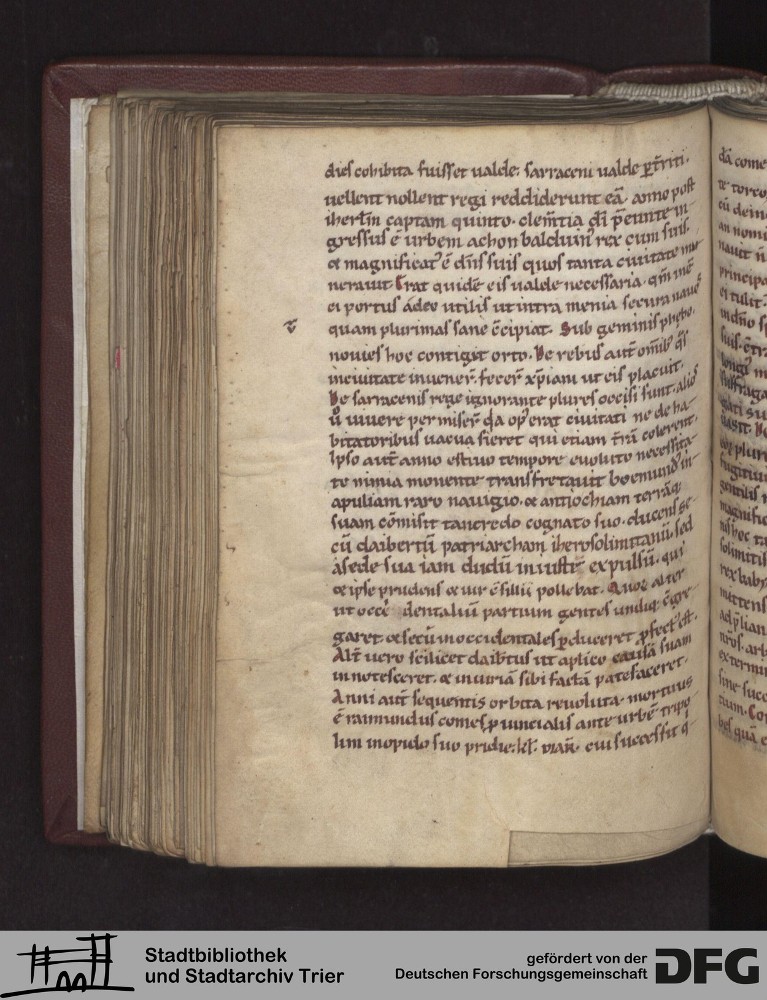 dies cohibita fuisset ualde. sarraceni ualde ꝑt̄riti.
uellent nollent regi reddiderunt eā. anno post
iherl̄m captam quinto. clem̄tia d̄i p̄eunte in
gressus ē urbem achon balduin᷒ rex cum suis.
& magnificat᷒ ē dn̄s suis quos tanta ciuitate mu
nerauit. Erat quidē eis ualde necessaria. qm̄ inē
ei portus ádeo utilis ut intra menia secura naues
quam plurimas sane c̄cipiat. Sub geminis phębo.
nouies hoc contigit orto. De rebus aut̄ omib᷒ q̄s
inciuitate inuener̄. fecer̄ xp̄iani ut eis placuit.
De sarracenis rege ignorante plures occisi sunt. alios
ů uiuere permiser̄ q̄a op᷒ erat ciuitati ne de ha
bitatoribus uacua fieret qui etiam t̄rā colerent.
Ipso aut̄ anno estiuo tempore euoluto necessita
te nimia monente transfretauit boemund᷒ in
apuliam raro nauigio. & antiochiam terrāq;
suam cōmisit tancredo cognato suo. ducens se
cū daibertū patriarcham iherosolimitanū. sed
á sede sua iam dudū iniuste expulsū. qui
& ipse prudens & uir c̄silii pollebat. Quoꝝ alter
ut occi dentaliū partium gentes undiq; c̄gre
garet. & secū inoccidentales ꝑduceret ꝓfect᷒ est.
Alt̄ uero scilicet daib̄tus ut aplico causā suam
innotesceret. & iniuriā sibi factā patefaceret.
Anni aut̄ sequentis orbita reuoluta. mortuus
ē raimundus comes ꝓuincialis ante urbē tripo
lim inopido suo pridie. kl̄. mar̄. cui successit q͛
Stadtbibliothek
und Stadtarchiv Trier
gefördert von der
Deutschen Forschungsgemeinschaft
DFG